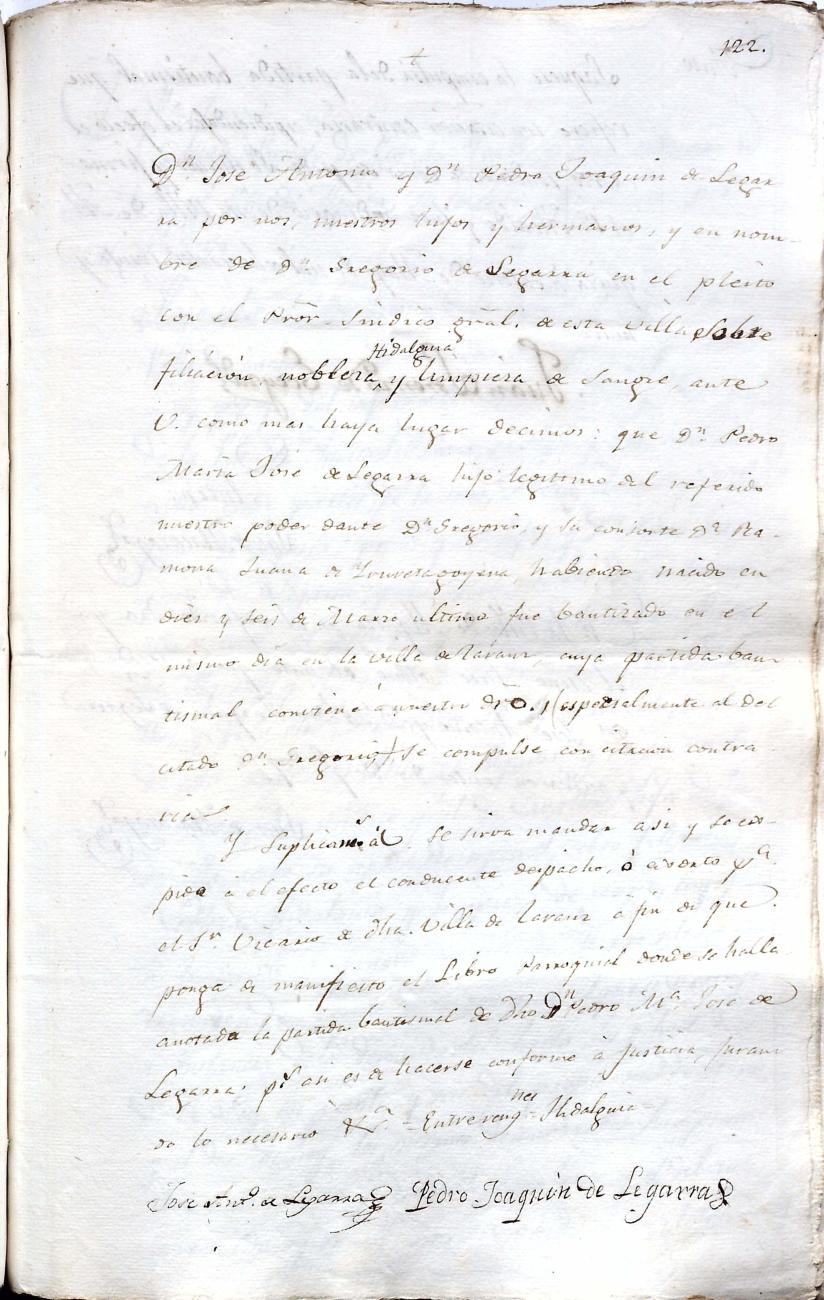 122.
Dn. Jose Antonio y Dn. Pedro Joaquin de Legar
ra por nos, nuestros hijos y hermanos, y en nom-
bre de Dn. Gregorio de Legarra en el pleito
con el Pror. Sindico gral. de esta villa sobre
Hidalguia
filiacion, nobleza, y limpieza de sangre, ante
V. como mas haya lugar decimos: que Dn. Pedro
Maria Jose de Legarra hijo legitimo del referido
nuestro poder dante Dn. Gregorio, y su consorte Da. Ra-
mona Juana de Yruretagoyena, habiendo nacido en
diez y seis de Marzo ultimo fue bautizado en el
mismo dia en la villa de Zarauz, cuya partida bau
tismal conviene á nuestro dro. (especialmente al del
citado Dn. Gregorio) se compulse con citacion contra
ria
Y Suplicamos á V. se sirva mandar asi y se ex-
pida á el efecto el conducente despacho, ó exorto pa.
el Sr. Vicario de dha. Villa de Zarauz á fin de que
ponga de manifiesto el Libro Parroquial donde se halla
anotada la partida bautismal de dho Dn Pedro Ma. Jose de
Legarra: pr. asi es de hacerse conforme á Justicia, juran
do lo necesario &a. = Entrerengnes = Hidalguia =
Jose Anto. de Legarra Pedro Joaquin de Legarra